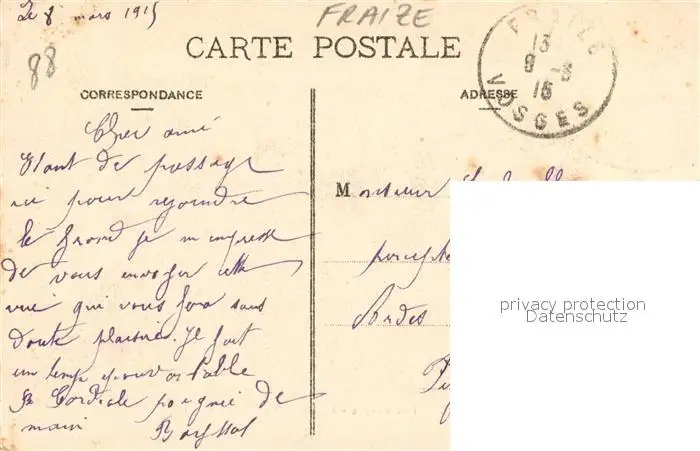 Le 8 mars 1915
FRAIZE
88
CARTE POSTALE
FRAIZE
13
9 - 3
15
VOSGES
CORRESPONDANCE
ADRESSE
Cher ami
Etant de passage
ici pour rejoindre
le front je m'empresse
de vous envoyer cette
vue qui vous fera sans
doute plaisir. Il fait
un temps épouvantable
Cordiale poignée de
main
Monsieur
Bordes
privacy protection
Datenschutz